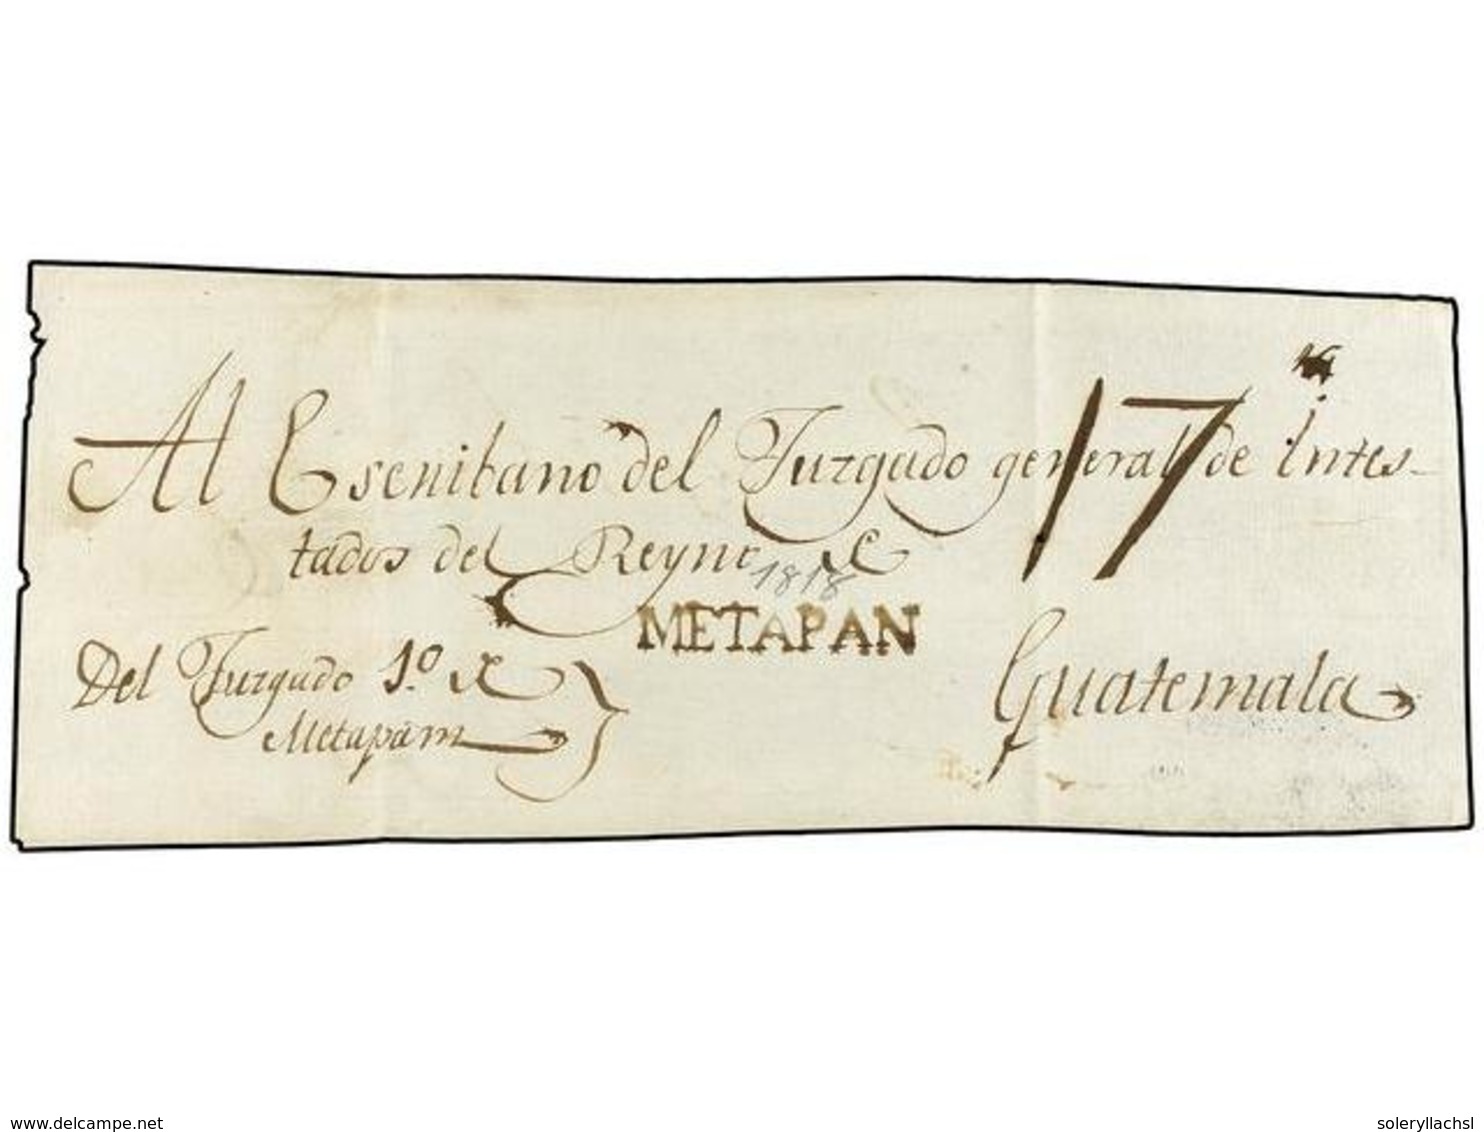 Al Escribano del Juzgado general de Intes-
17
tados del Reyno &
1818
METAPAN
Del Juzgado 1.º de
Metapam
Guatemala
delcampe.net
soleryllachsl